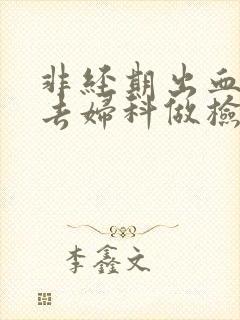 非经期出血
去妇科做检
李鑫文